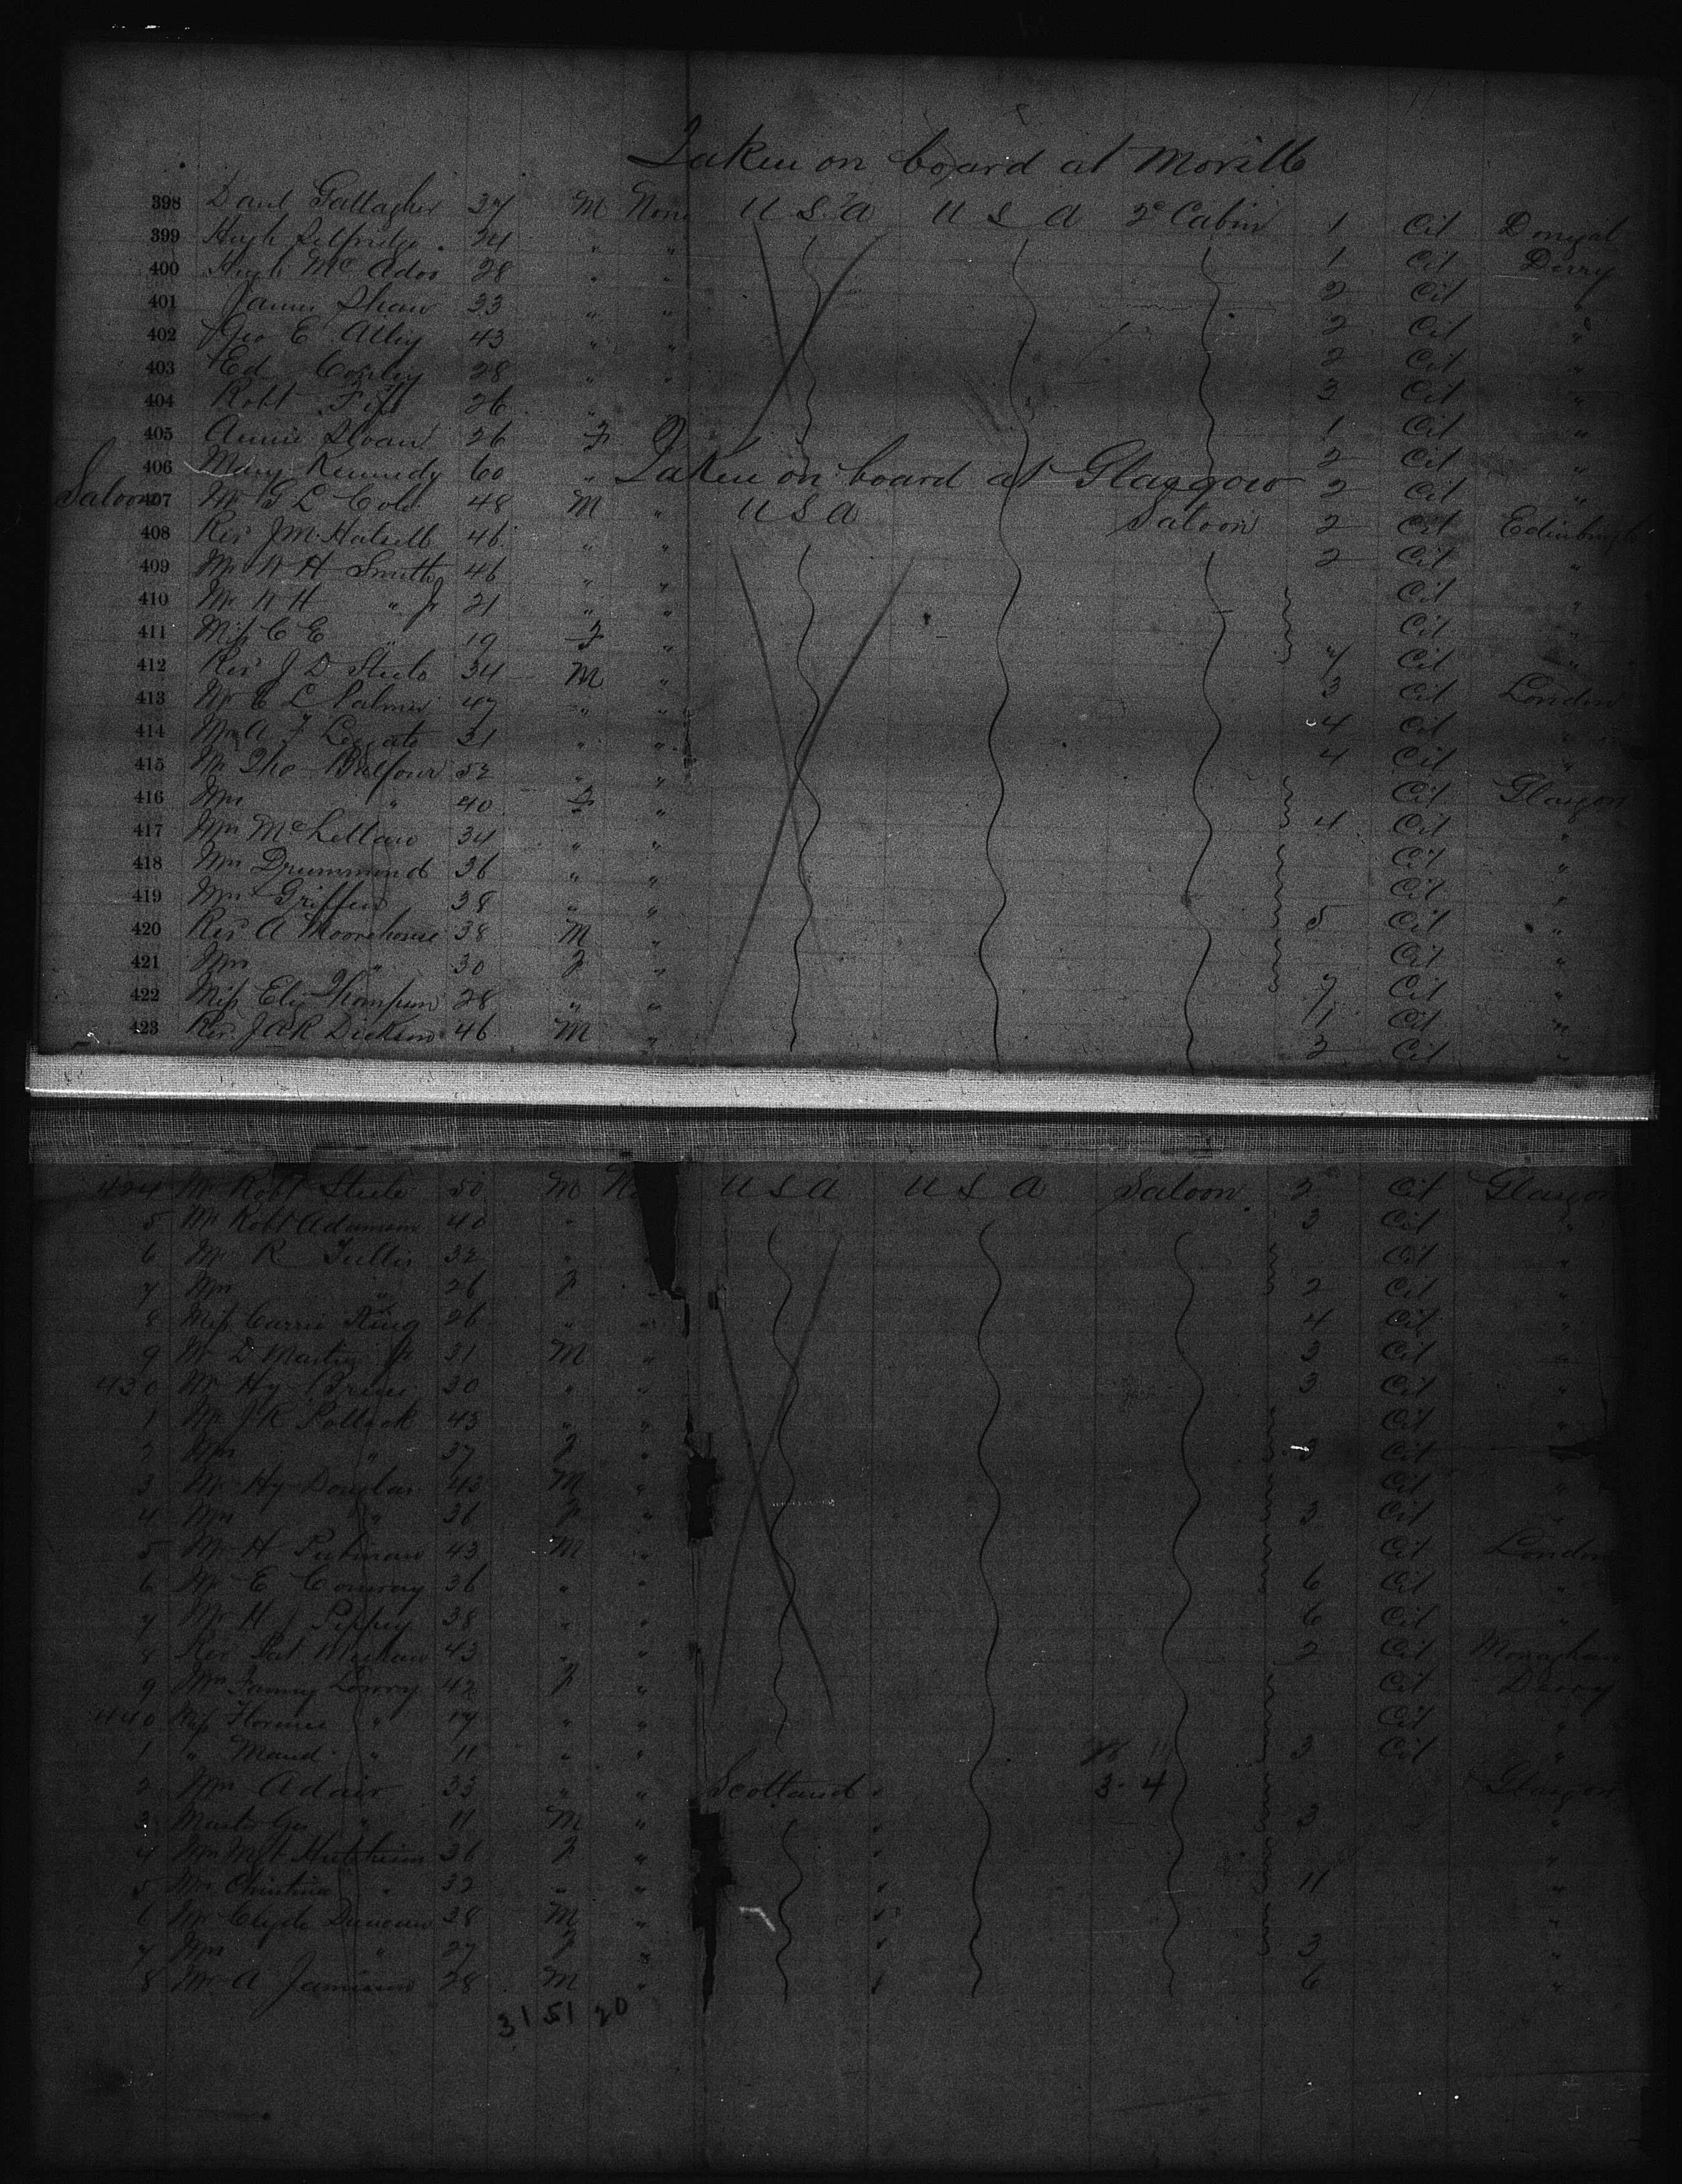 Taken on board at Moville
398 Danl Gallagher 37 M None U S A U S A 2e Cabin 1 Cit Donegal
399 Hugh Selfridge 24 " " 1 Cit Derry
400 Hugh McAdoo 28 " " 2 Cit "
401 James Shaw 33 " " 2 Cit "
402 Geo E Alley 43 " " 2 Cit "
403 Ed 28 " " 3 Cit "
404 Robt 26 " 1 Cit "
405 Annie Sloan 26 F 2 Cit "
406 Mary Kennedy 60 " 2 Cit "
Taken on board at Glasgow
Saloon 407 Mr G L Cole 48 M " U S A Saloon 2 Cit Edinburgh
408 Rev J M Hatsell 46 " " 2 Cit "
409 Mr W H Smith 46 " " Cit "
410 Mr W H " Jr 21 " " Cit "
411 Miss C E " 19 F " 4 Cit "
412 Rev J D Steele 34 M " 3 Cit London
413 Mr E L Palmer 47 " " 4 Cit "
414 A F Leggate 31 " " 4 Cit "
415 Mr Tho Balfour 52 " " Cit Glasgow
416 Mrs " 40 F " 4 Cit "
417 Mrs McLellan 34 " " Cit "
418 Mrs Drummond 36 " " Cit "
419 Mrs Griffen 38 " " 5 Cit "
420 Rev A Moorehouse 38 M " Cit "
421 Mrs " 30 F " 7 Cit "
422 Miss Eliz Thompson 28 " " 1 Cit "
423 Rev J A R Dickson 46 M " 2 Cit "
424 Mr Robt Steele 50 M U S A U S A Saloon 2 Cit Glasgow
5 Mr Robt Adamson 40 " 3 Cit "
6 Mr R Tullis 32 " " Cit "
7 Mrs " 26 F " 2 Cit "
8 Miss Carrie King 26 " " 4 Cit "
9 Mr D Martin Jr 31 M " 3 Cit "
430 Mr Hy 30 " " 3 Cit "
1 Mr J R Pollock 45 " " Cit "
2 Mrs " 37 F " 3 Cit "
3 Mr Hy Douglas 43 M " Cit "
4 Mrs " 36 F " 3 Cit "
5 Mr H Putnam 43 M " Cit London
6 Mr E Conway 36 " " 6 Cit "
7 Mr H J Pippey 38 " " 6 Cit "
8 Rev Pat Meehan 43 " " 2 Cit Monaghan
9 Mrs Fanny Lowry 42 F " Cit Derry
440 Miss Florence " 17 " " Cit "
1 " Maud " 11 " " 3 Cit "
2 Mrs Adair 33 " " Scotland 3-4 Glasgow
3 Master Geo " 11 M " 3 "
4 Mrs Hutchison 36 F " "
5 Mrs Christina " 32 " " 11 "
6 Mr Clyde Duncan 38 M " "
7 Mrs " 27 F " 3 "
8 Mr A Jamieson 28 M " 6 "
31 51 20